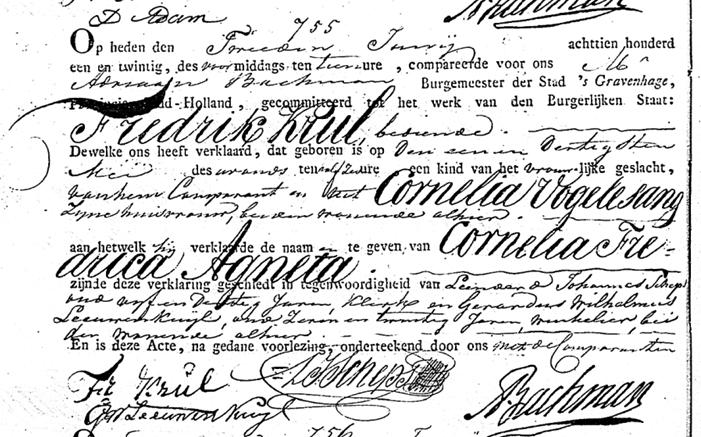 D Adam
ABachman
755
Op heden den Tweeden Junij achttien honderd
een en twintig, des voormiddags ten tien ure, compareerde voor ons Mr
Adriaan Bachman Burgemeester der Stad 's Gravenhage,
Provincie Zuid-Holland, gecommitteerd tot het werk van den Burgerlijken Staat:
Fredrik Krul,
Dewelke ons heeft verklaard, dat geboren is op den een en dertigsten
Mei des avonds ten ure een kind van het vrouwlijke geslacht,
van hem Comparant en met Cornelia Vogelesang
Zyne huisvrouw, beiden wonende alhier.
aan hetwelk hij verklaarde de naam en te geven van Cornelia Fre-
drica Agneta.
zijnde deze verklaring geschiedt in tegenwoordigheid van Leendard Johannes Scheps
oud vijf en Dertig Jaren, Klerk en Gerardus Wilhelmus
Leeuwenkuyl, oud Zeven en twintig Jaren, winkelier, bei
den wonende alhier
En is deze Acte, na gedane voorlezing, onderteekend door ons met de Comparanten
Fk Krul
LJScheps
ABachman
GW Leeuwenkuyl
756